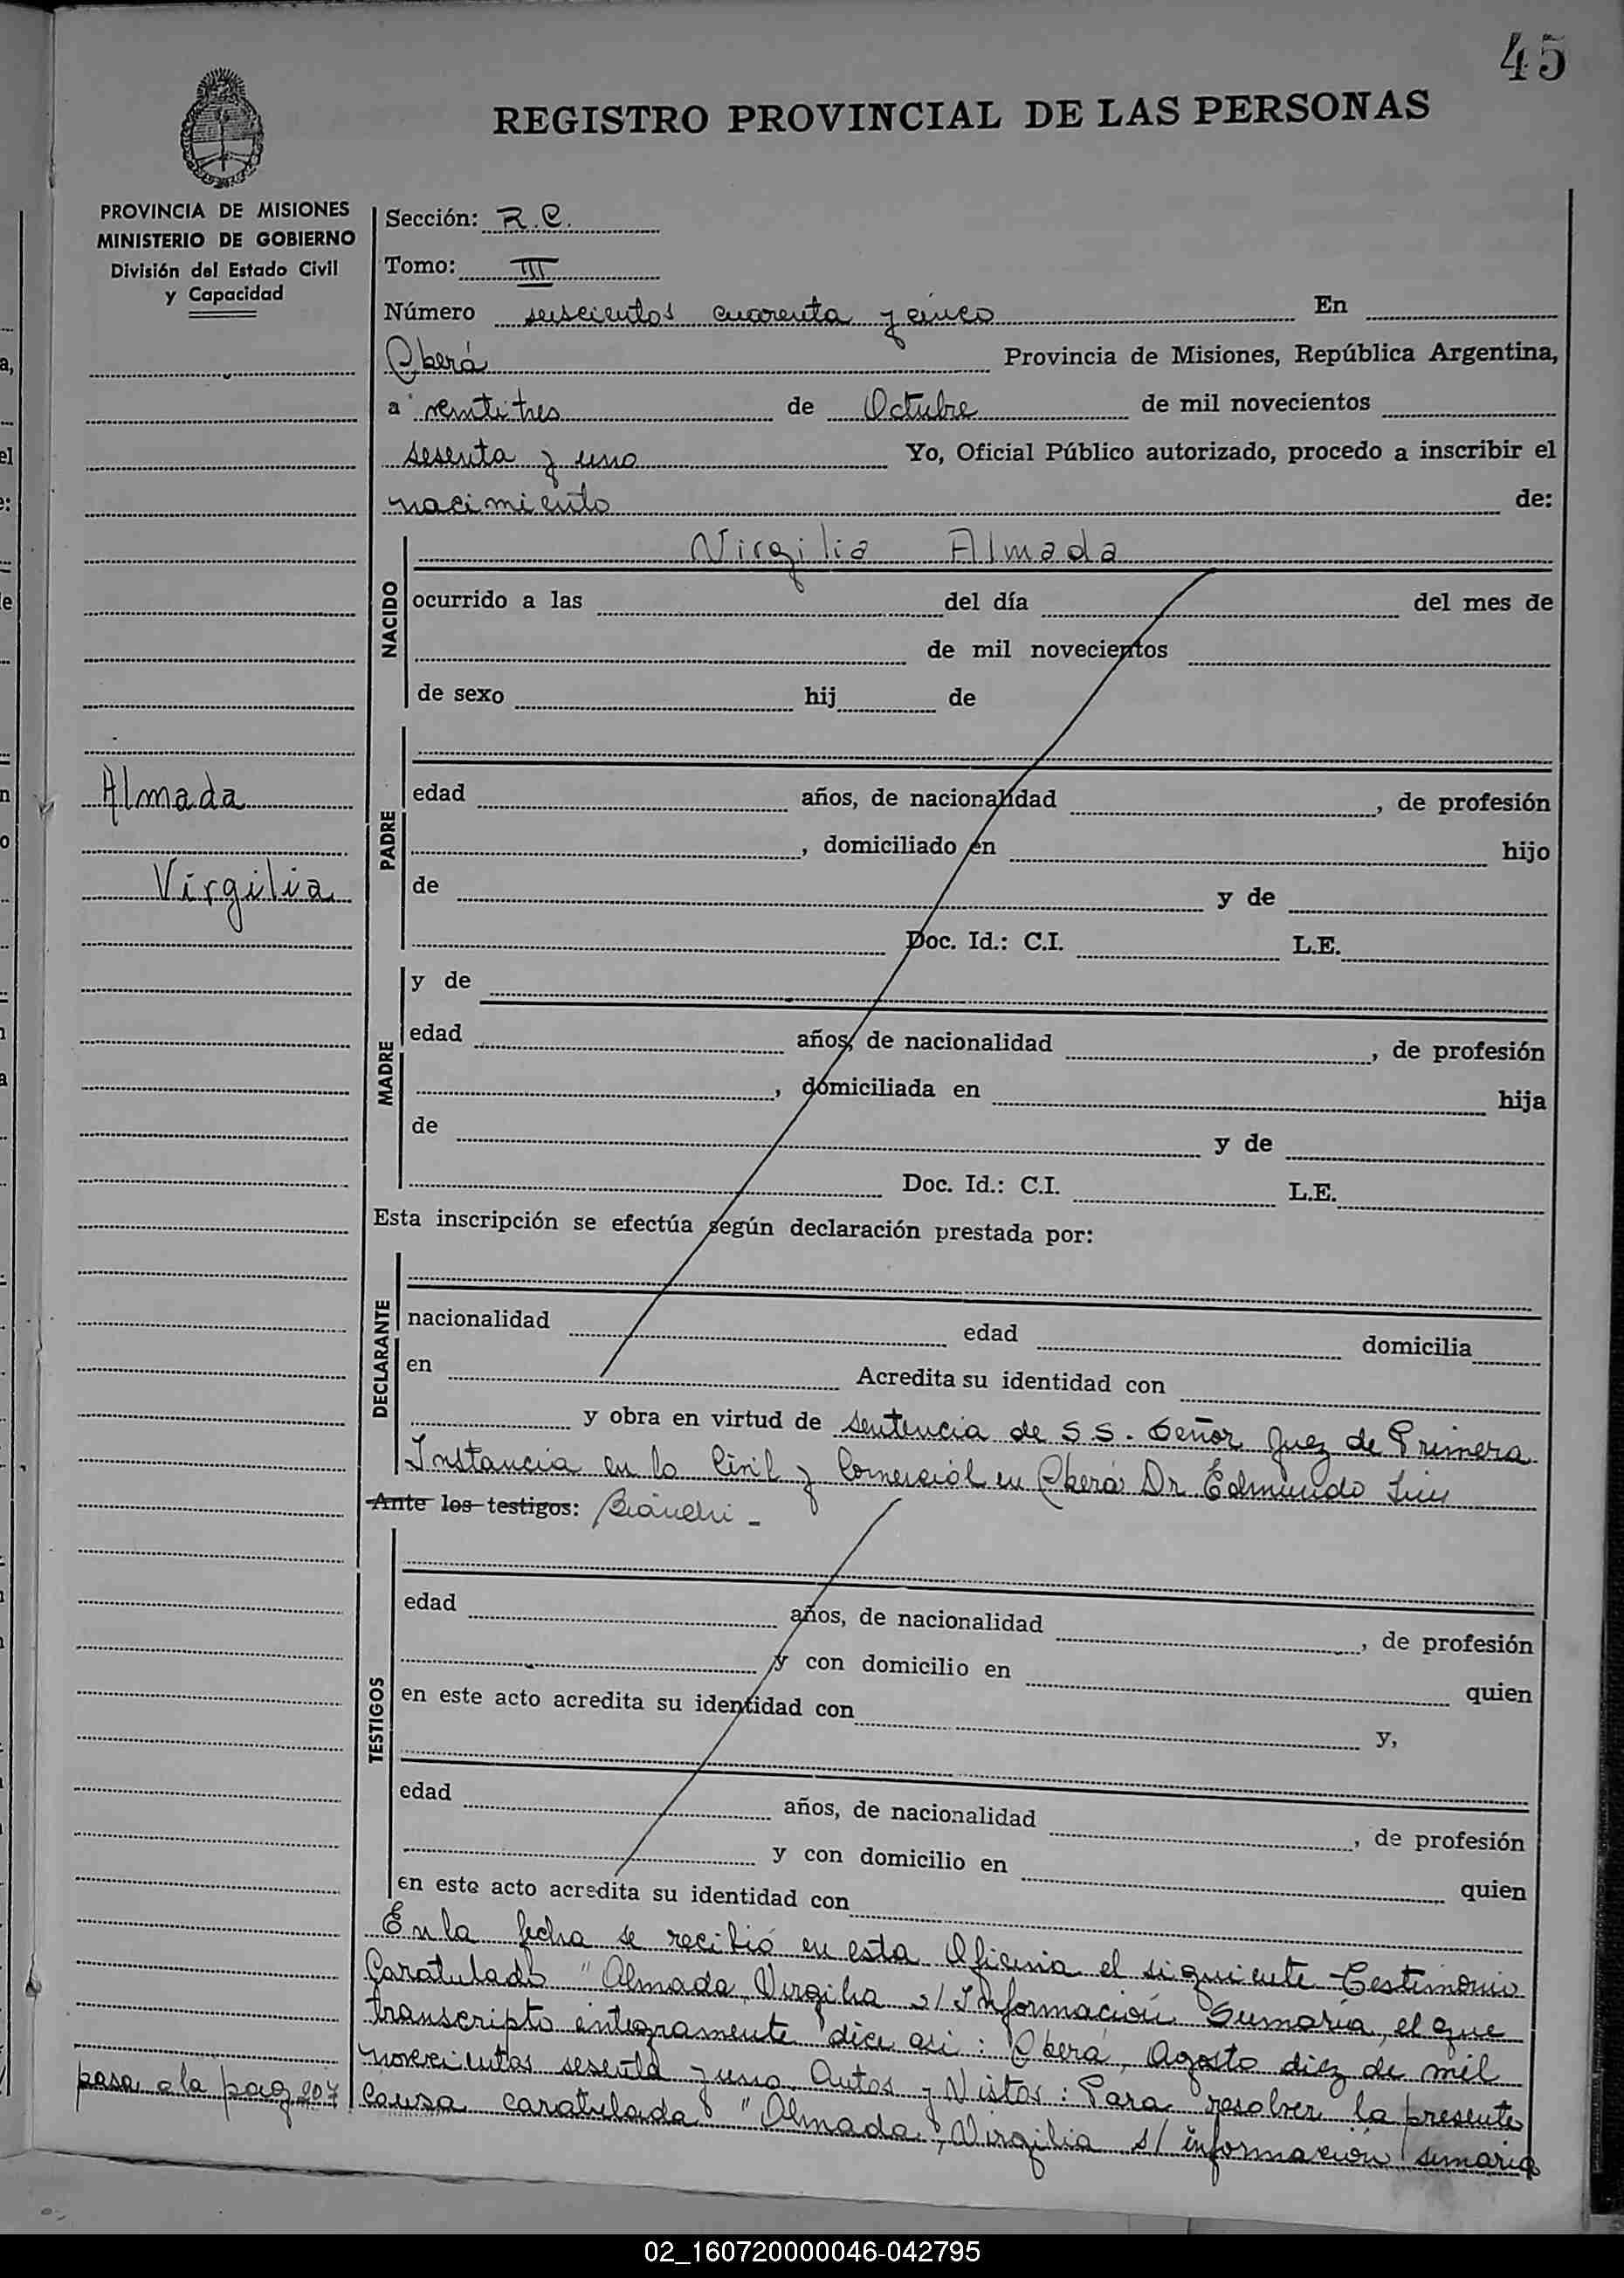 45
REGISTRO PROVINCIAL DE LAS PERSONAS
PROVINCIA DE MISIONES
MINISTERIO DE GOBIERNO
División del Estado Civil
y Capacidad
Sección: R.C.
Tomo: III
Número seiscientos cuarenta y cinco En
Oberá Provincia de Misiones, República Argentina,
a veintitres de Octubre de mil novecientos
sesenta y uno Yo, Oficial Público autorizado, procedo a inscribir el
nacimiento de:
NACIDO
Virgilia Almada
ocurrido a las del día del mes de
de mil novecientos
de sexo hij de
PADRE
edad años, de nacionalidad , de profesión
, domiciliado en hijo
de y de
Doc. Id.: C.I. L.E.
Almada
Virgilia
MADRE
y de
edad años, de nacionalidad , de profesión
, domiciliada en hija
de y de
Doc. Id.: C.I. L.E.
Esta inscripción se efectúa según declaración prestada por:
DECLARANTE
nacionalidad edad domicilia
en Acredita su identidad con
y obra en virtud de sentencia de S.S. Señor Juez de Primera
Instancia en lo Civil y Comercial en Oberá Dr Edmundo Luis
Ante los testigos: Bianchi -
TESTIGOS
edad años, de nacionalidad , de profesión
y con domicilio en quien
en este acto acredita su identidad con y,
edad años, de nacionalidad , de profesión
y con domicilio en quien
en este acto acredita su identidad con
En la fecha se recibió en esta Oficina el siguiente Testimonio
Caratulado "Almada, Virgilia s/ Información Sumaria, el que
transcripto integramente dice asi: Oberá, Agosto diez de mil
novecientos sesenta y uno. Autos y Vistos: Para resolver la presente
causa caratulada "Almada, Virgilia s/ información sumaria
pasa a la pag 207
02_160720000046-042795